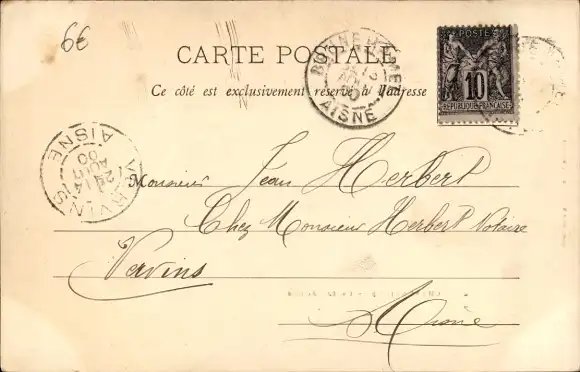 6€
CARTE POSTALE
Ce côté est exclusivement réservé à l'adresse
POSTE
10
REPUBLIQUE FRANÇAISE
AISNE
VERVINS
AISNE
AOUT
00
Monsieur Jean Herbert
Chez Monsieur Herbert Notaire
Vervins
Aisne